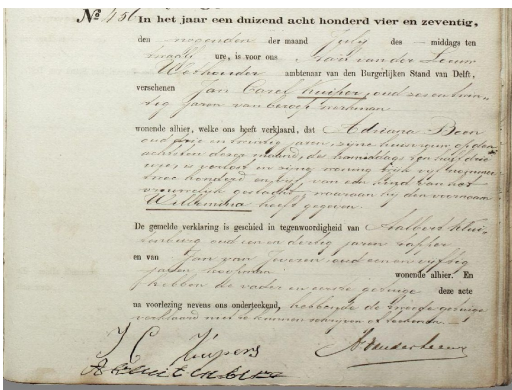 No 456 In het jaar een duizend acht honderd vier en zeventig,
den negenden der maand July des — middags ten
twaalf ure, is voor ons van der Leeuw
Wethouder ambtenaar van den Burgerlijken Stand van Delft,
verschenen Jan Carel Kuipers, oud zeven
jaren van beroep werkman
wonende alhier, welke ons heeft verklaard, dat Adriana Boon
oud drie en twintig jaren, zijne huisvrouw op den
achtsten dezer maand, des namiddags ten half drie
ure, is verlost in zijne woning wijk vijf nummer
twee honderd en vijf van een kind van het
vrouwelijk geslacht, waaraan hij den voornaam
Willemina heeft gegeven
De gemelde verklaring is geschied in tegenwoordigheid van
oud een en dertig jaren
en van Jan van oud een en vijftig
jaren, wonende alhier. En
hebben de vader en eerste getuige deze acte
na voorlezing nevens ons onderteekend, hebbende de tweede getuige
verklaard niet te kunnen
J C Kuipers